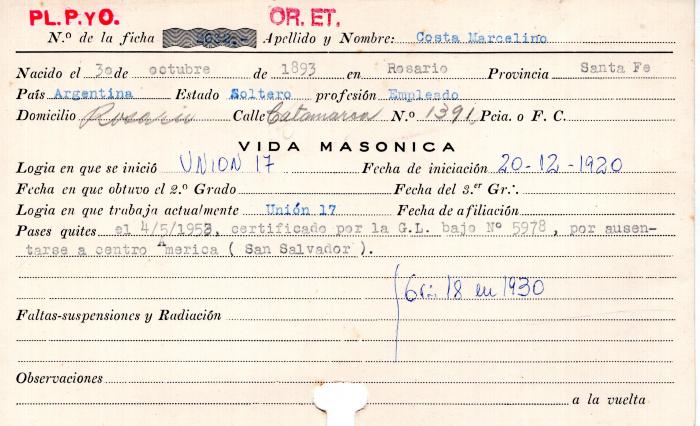 PL. P. y O. OR. ET.
N.º de la ficha Apellido y Nombre: Costa Marcelino
Nacido el 30 de octubre de 1893 en Rosario Provincia Santa Fe
País Argentina Estado Soltero profesión Empleado
Domicilio Rosario Calle Catamarca N.º 1391 Pcia. o F. C.
VIDA MASONICA
Logia en que se inició UNION 17 Fecha de iniciación 20-12-1920
Fecha en que obtuvo el 2.º Grado Fecha del 3.er Gr∴
Logia en que trabaja actualmente Unión 17 Fecha de afiliación
Pases quites el 4/5/1953, certificado por la G.L. bajo Nº 5978, por ausen-
tarse a centro America ( San Salvador ).
Gr∴ 18 en 1930
Faltas-suspensiones y Radiación
Observaciones
a la vuelta